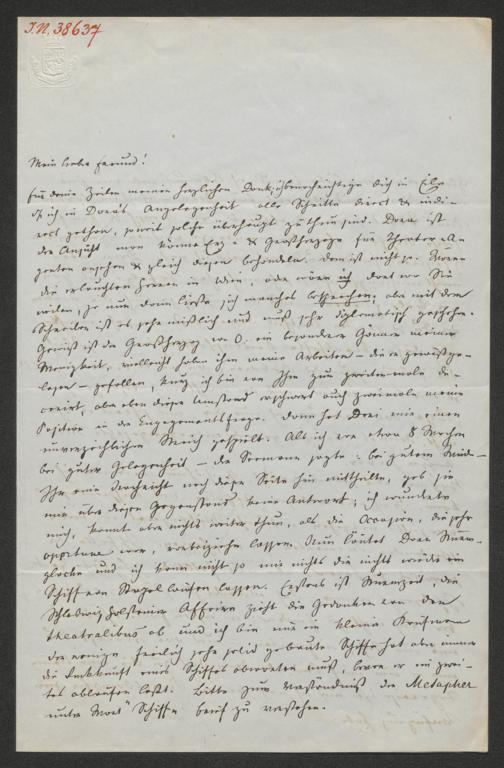 I.N. 38637
Mein lieber Freund!
Für deine Zeilen meinen herzlichen Dank, überdich in Eile
daß ich in Dora's Angelegenheit alle Schritte direct & indi-
rect gethan, soweit solche überhaupt zu thun sind. Dora ist
der Ansicht man könne Erz- & Großherzoge für Theater-A-
genten ansehen & gleich diesen behandeln. Dem ist nicht so. Wären
die erlauchten Herren in Wien, oder wären ich dort wo Sie
weilen, je nun dann ließe sich manches besprechen, aber mit dem
Schreiben ist es sehr mißlich und muß sehr diplomatisch geschehen.
Gewiß ist der Großherzog von O. ein besonderer Gönner meiner
Wenigkeit, vielleicht haben ihm meine Arbeiten – die er
lesen – gefallen, kurz ich bin von Ihm zum zweitenmale de-
corirt, aber eben dieser Umstand erschwert auch zweimale meine
Position in der Engagementsfrage. Dann hat Dora mir einen
unverzeihlichen Streich gespielt. Als ich vor etwa 8 Wochen
bei guter Gelegenheit – der Seemann sagte: bei gutem Winde –
Ihr eine nach dieser Seite hin mittheilte, gab sie
mir über diesen Gegenstand keine Antwort; ich wunderte
mich, konnte aber nichts weiter thun, als die Occasion, die sehr
opportune war, vorbeiziehen lassen. Nun läutet Dora Sturm-
glocke und ich kann nicht so mir nichts dir nichts wieder ein
Schiff vom Stapel laufen lassen. Erstens ist, die
Schleswig Holsteiner Affairen zieht die Gedanken von den
theatralibus ab und ich bin nur ein kleiner Kaufmann
der wenige freilich sehr solid gebaute Schiffe hat aber immer
die Ankunft eines Schiffes abwarten muß, bevor er ein zwei-
tes ablaufen läßt. Bitte zum Verständniß der Metapher
unter Wort "Schiff" Brief zu verstehen.